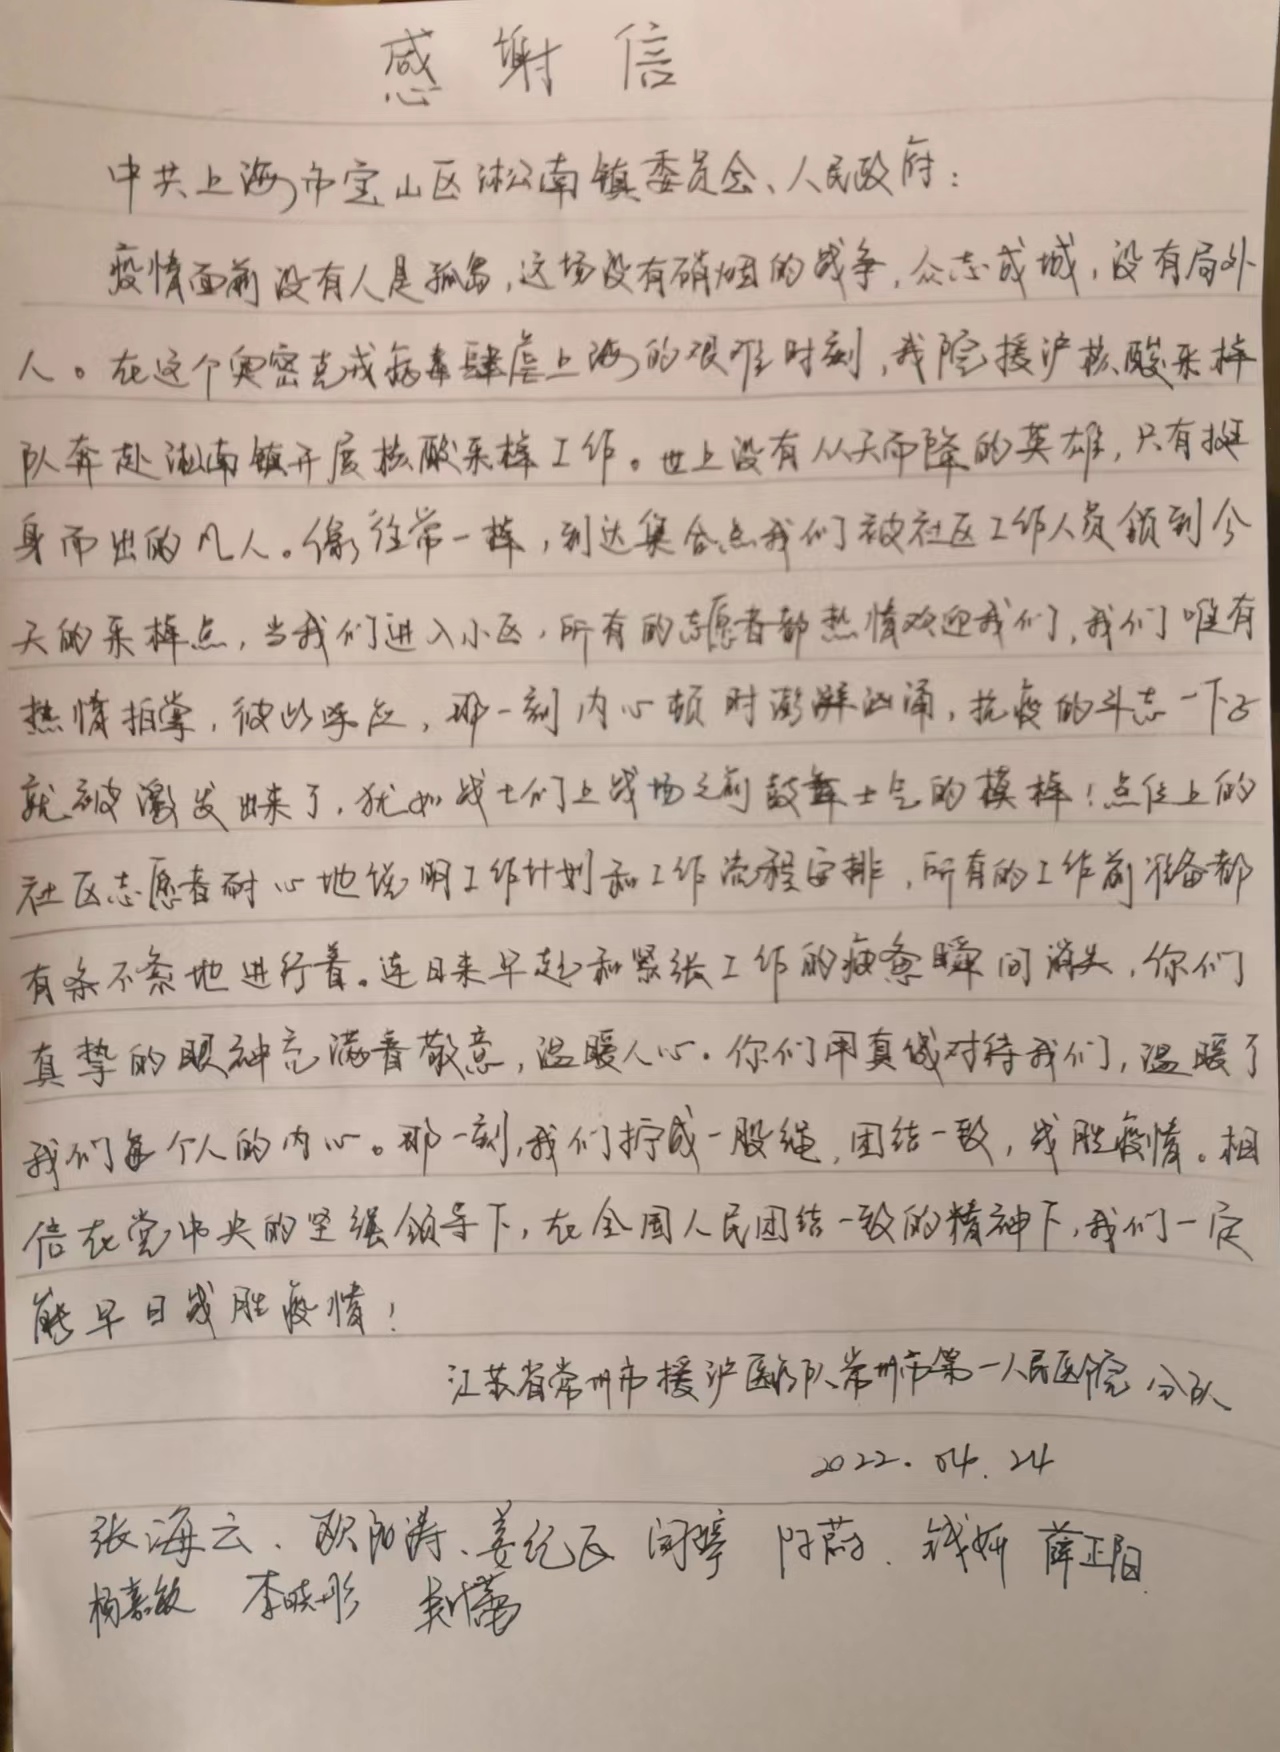 感谢信
中共上海市宝山区淞南镇委员会、人民政府：
疫情面前没有人是孤岛，这场没有硝烟的战争，众志成城，没有局外
人。在这个奥密克戎病毒肆虐上海的艰难时刻，我院援沪核酸采样
队奔赴淞南镇开展核酸采样工作。世上没有从天而降的英雄，只有挺
身而出的凡人。像往常一样，到达集合点我们被社区工作人员领到今
天的采样点，当我们进入小区，所有的志愿者都热情欢迎我们，我们唯有
热情拍掌，彼此呼应，那一刻内心顿时澎湃汹涌，抗疫的斗志一下子
就被激发出来了，犹如战士们上战场之前鼓舞士气的模样！点位上的
社区志愿者耐心地说明工作计划和工作流程安排，所有的工作前准备都
有条不紊地进行着。连日来早起和紧张工作的疲惫瞬间消失，你们
真挚的眼神充满着敬意，温暖人心。你们用真诚对待我们，温暖了
我们每个人的内心。那一刻，我们拧成一股绳，团结一致，战胜疫情。相
信在党中央的坚强领导下，在全国人民团结一致的精神下，我们一定
能早日战胜疫情！
江苏省常州市援沪医疗队常州市第一人民医院分队
2022.04.24
张海云、欧阳涛、姜纪民 陈蔚、钱妍 薛正阳
杨嘉敏 李晓彤